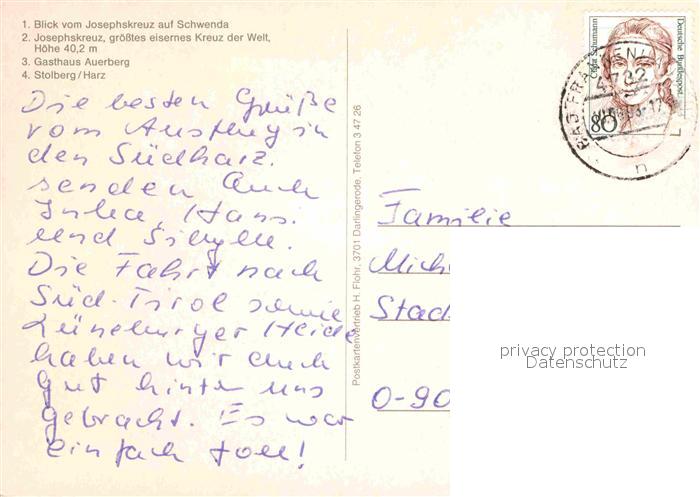 1. Blick vom Josephskreuz auf Schwenda
2. Josephskreuz, größtes eisernes Kreuz der Welt,
Höhe 40,2 m
3. Gasthaus Auerberg
4. Stolberg/Harz
Die besten Grüße
vom Ausflug in
den Südharz.
senden Euch
Hansi
und Sibylle.
Die Fahrt nach
Süd-Tirol sowie
Lüneburger Heide
haben wir auch
gut hinter uns
gebracht. Es war
einfach toll!
Postkartenvertrieb H. Flohr, 3701 Darlingerode, Telefon 3 47 26
Clara Schumann
Deutsche Bundespost
80
BAD FRANKEN
4732
n
Familie
Mich
Stad
O-90
privacy protection
Datenschutz